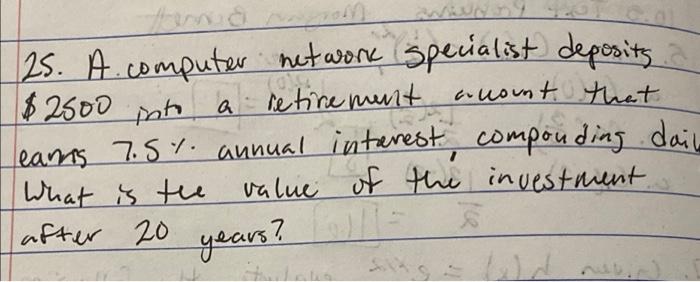 25. A computer network specialist deposits
$2500 into a retirement account that
earns 7.5% annual interest, compouding dail
What is the value of the investment
after 20 years?